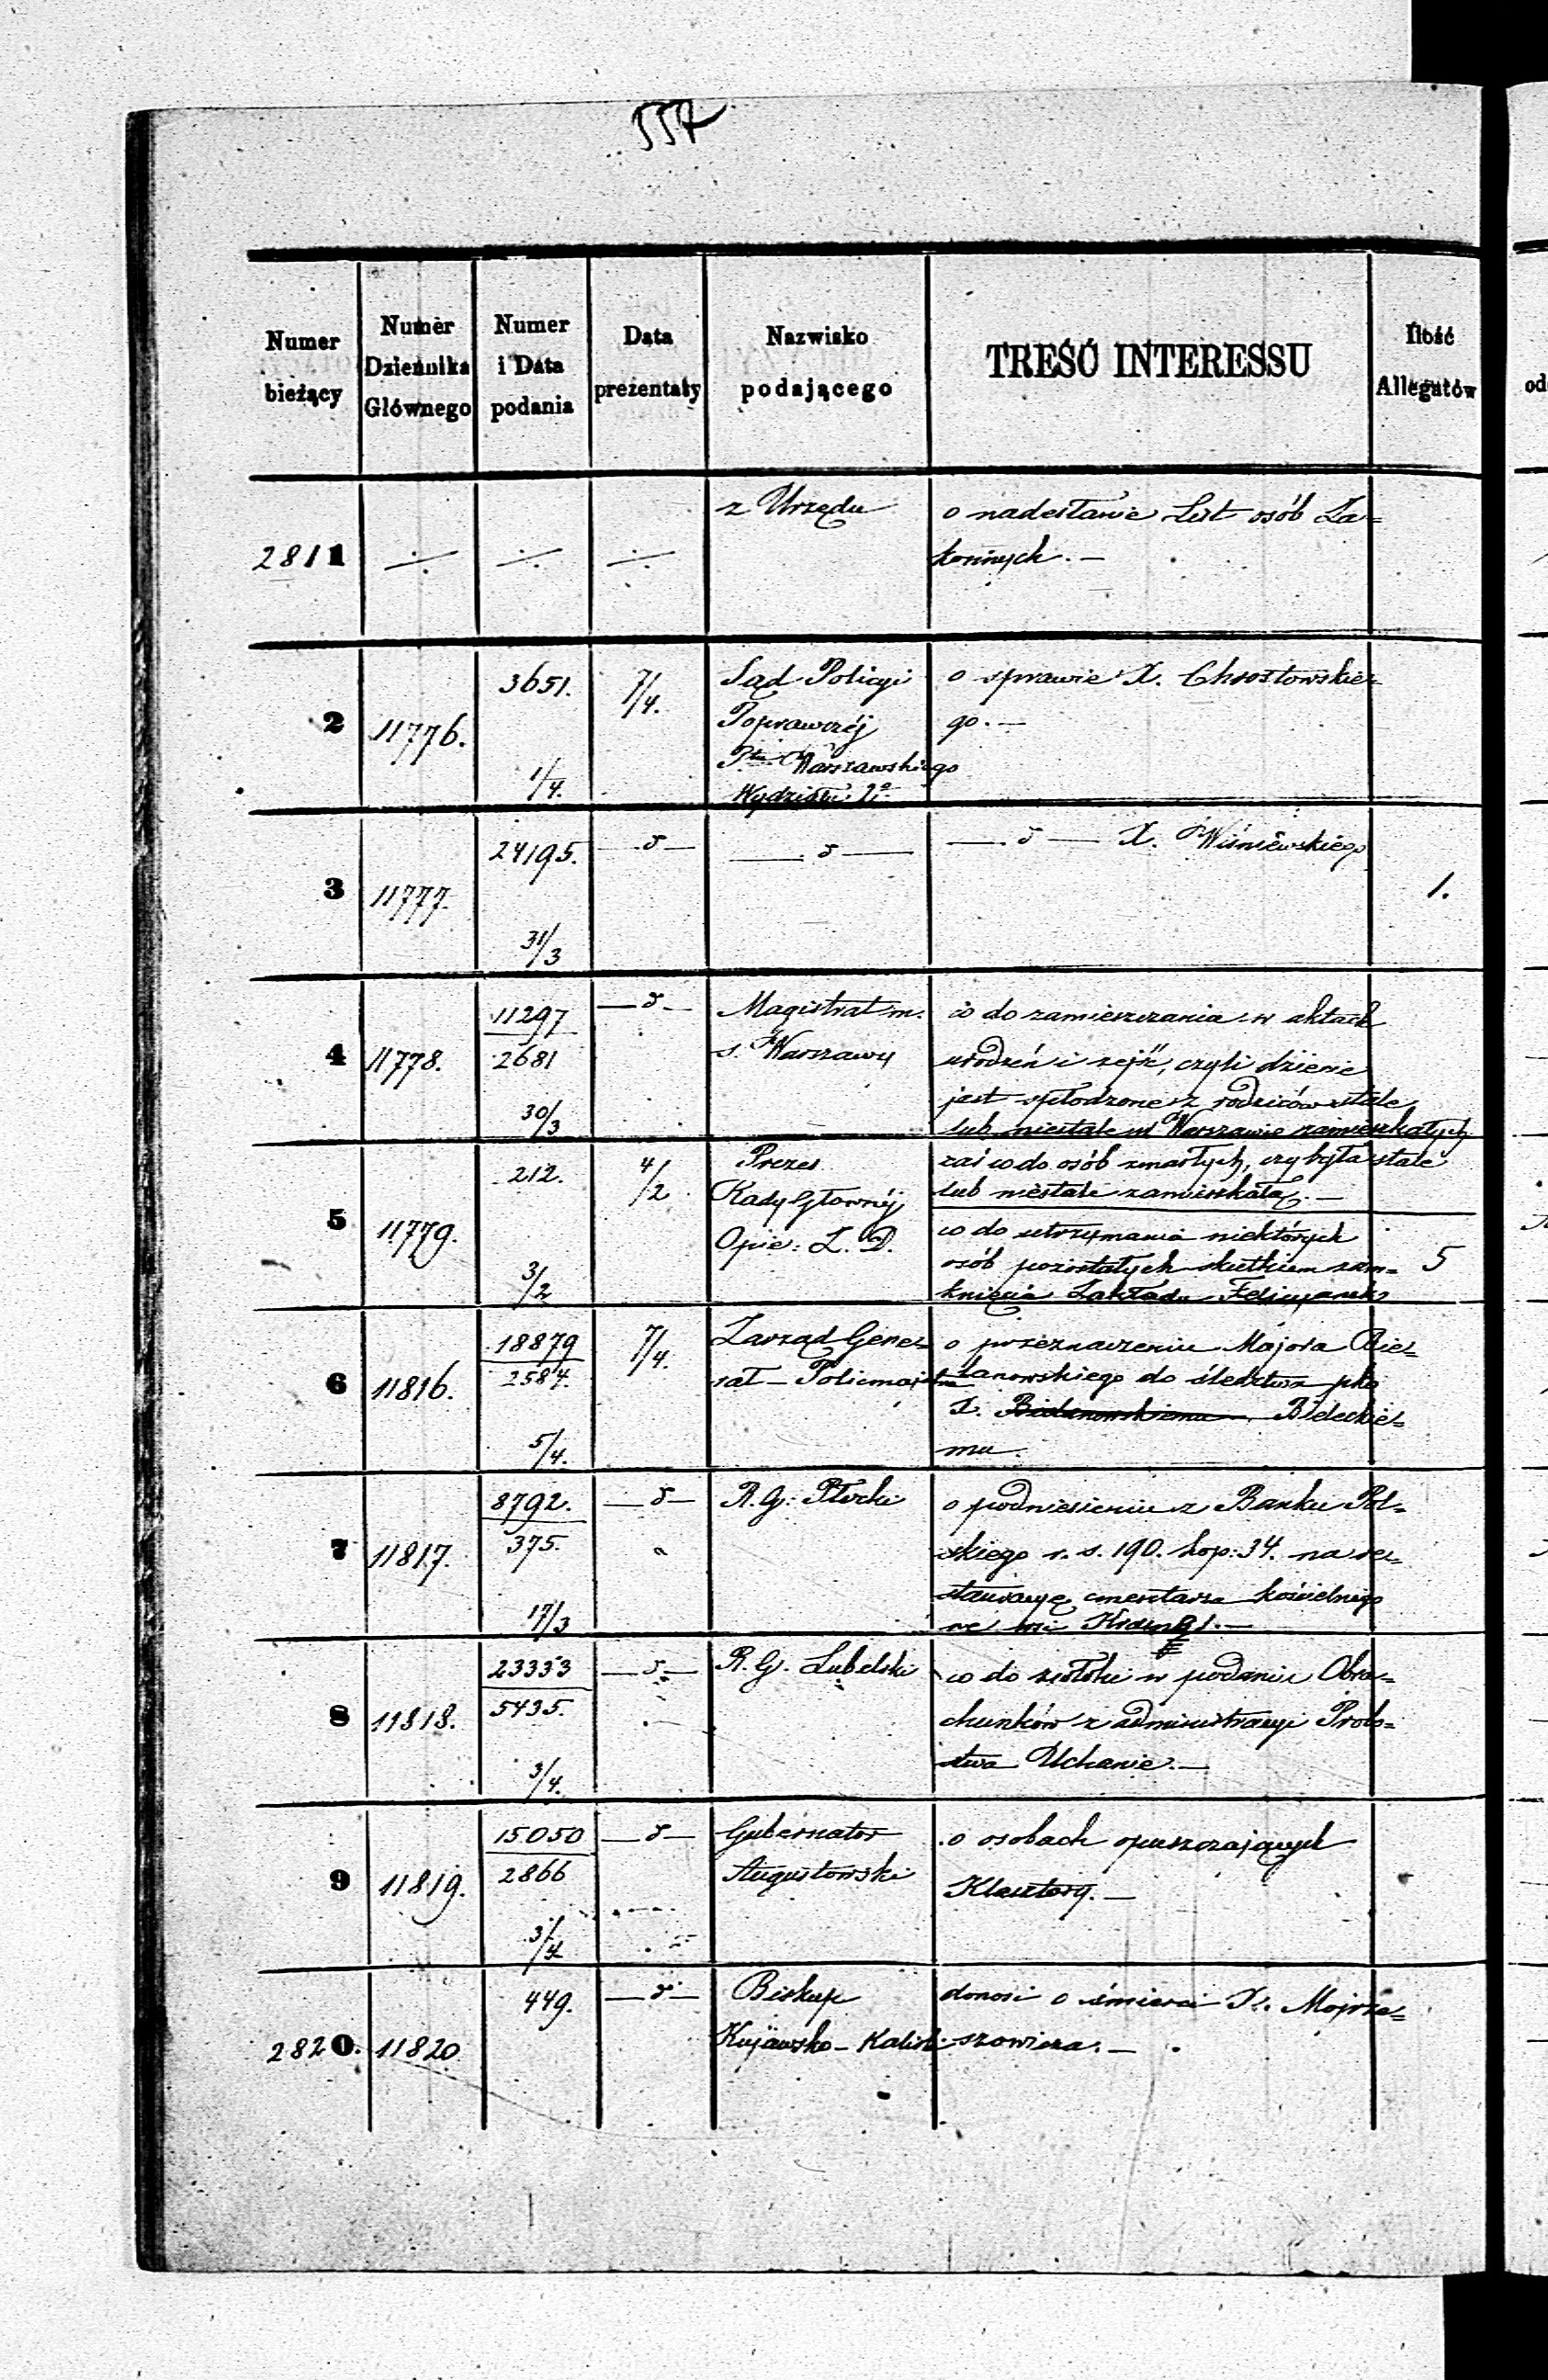 557
Numer bieżący | Numer Dziennika Głównego | Numer i Data podania | Data prezentaty | Nazwisko podającego | TREŚĆ INTERESSU | Ilość Allegatów
2811 ÷ ÷ ÷ z Urzędu o nadesłanie List osób Za=
konnych. —
2 11776. 3651. 1/4. 7/4. Sąd Policyi o sprawie X. Chrostowskie=
Poprawczéj go. —
Ptu Warszawskiego
Wydziału I°
3 11777. 24195. 31/3 —d— —d— —d— X. Wiśniewskiego 1.
4 11778. 11297 —d— Magistrat m. co do zamieszczania w aktach
2681 s. Warszawy urodzeń i zejść, czyli dziecie
30/3 jest spłodzone z rodziców stale
lub niestale w Warszawie zamieszkałych
zaś co do osób zmarłych, czy była stale
lub niestale zamieszkałą. —
5 11779. 212. 3/2 4/2 Prezes
Rady Głównéj co do utrzymania niektórych
Opie: Z. D. osób pozostałych skutkiem zam= 5
knięcia Zakładu Felicyanek
6 11816. 18879 7/4. Zarząd Gene= o przeznaczeniu Majora Bie=
2584. rał-Policmajstra lanowskiego do śledztwa pko
5/4. X. Bielanowskiemu Bieleckie=
mu.
7 11817. 8792. —d— R. G. Płocki o podniesieniu z Banku Pol=
375. skiego r. s. 190. kop: 34. na re=
17/3 stauracyę cmentarza kościelnego
we wsi
8 11818. 23333 —d— R. G. Lubelski co do zwłoki w podaniu Obra=
5435. chunków z administracyi Probo=
3/4. stwa Uchanie. —
9 11819. 15050 —d— Gubernator o osobach opuszczających
2866 Augustowski Klasztory. —
3/4
2820. 11820 449. —d— Biskup donosi o śmierci X.
Kujawsko-Kaliski